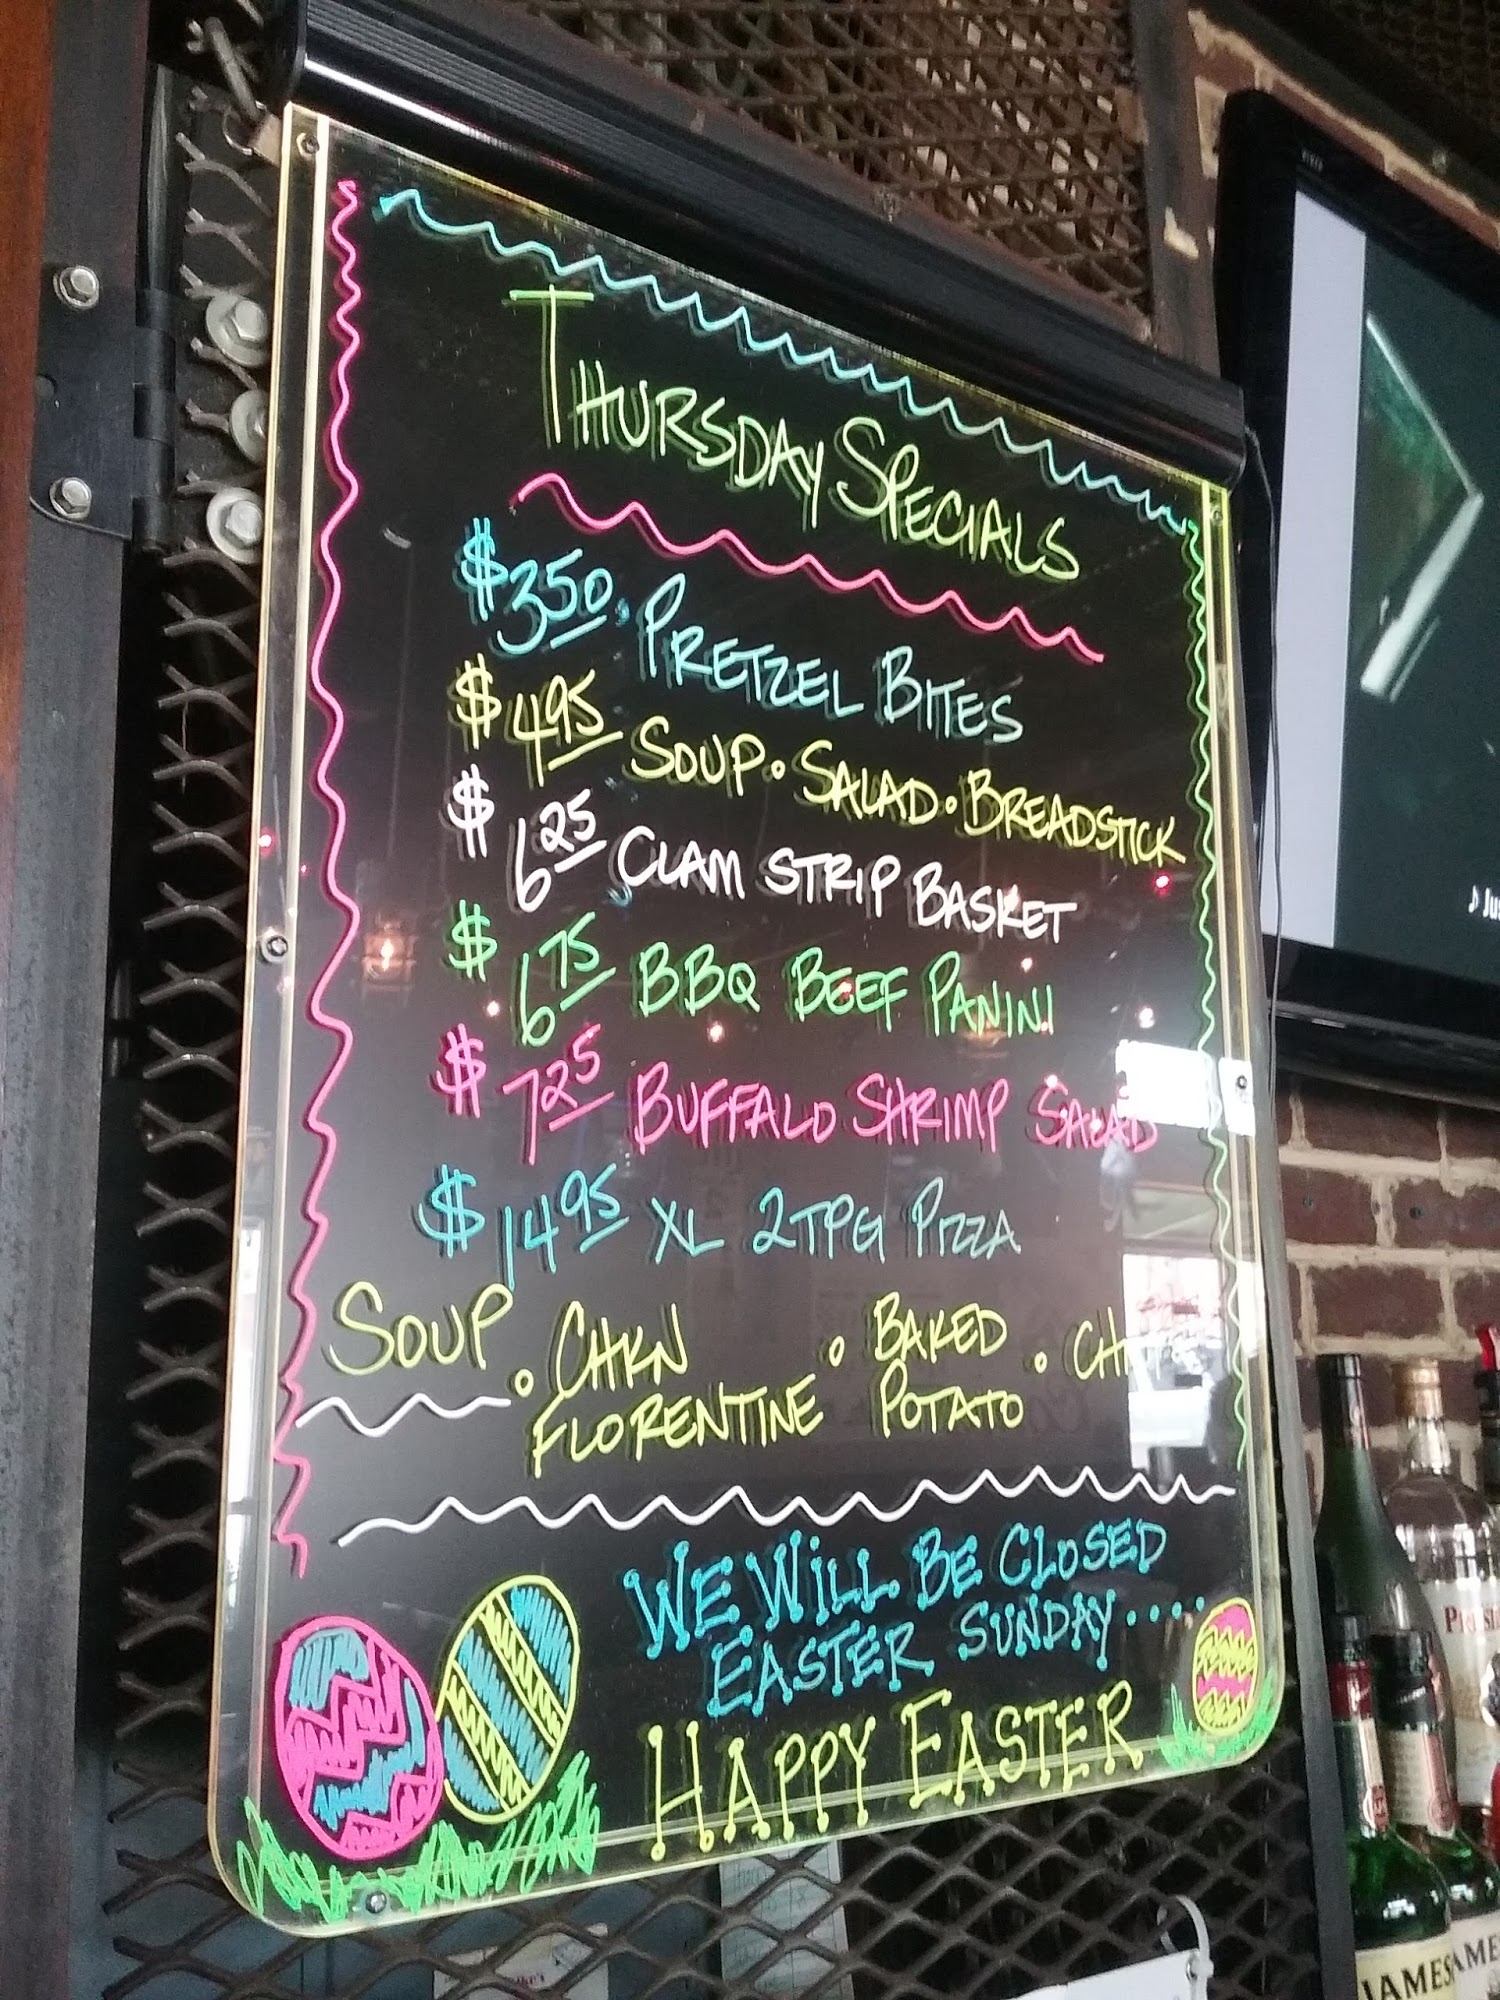 THURSDAY SPECIALS
$3.50 PRETZEL BITES
$4.95 SOUP • SALAD • BREADSTICK
$6.25 CLAM STRIP BASKET
$6.75 BBQ BEEF PANINI
$7.25 BUFFALO SHRIMP SALAD
$14.95 XL 2TPG PIZZA
SOUP • CHKN • BAKED •
FLORENTINE POTATO
WE WILL BE CLOSED
EASTER SUNDAY ....
HAPPY EASTER
♪ Jus
JAMES